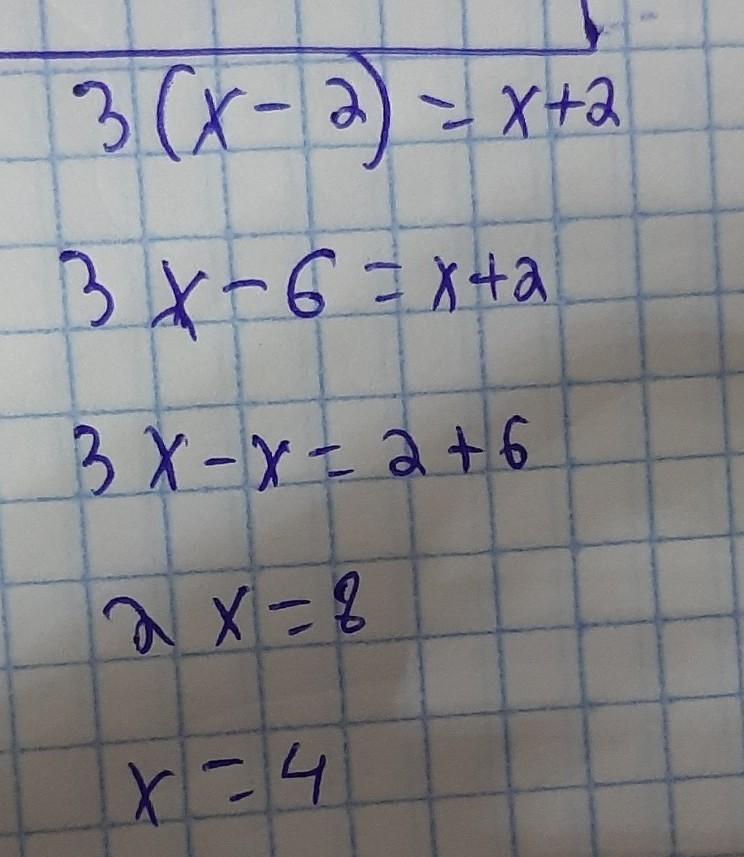 3(x-2)=x+2
3x-6=x+2
3x-x=2+6
2x=8
x=4